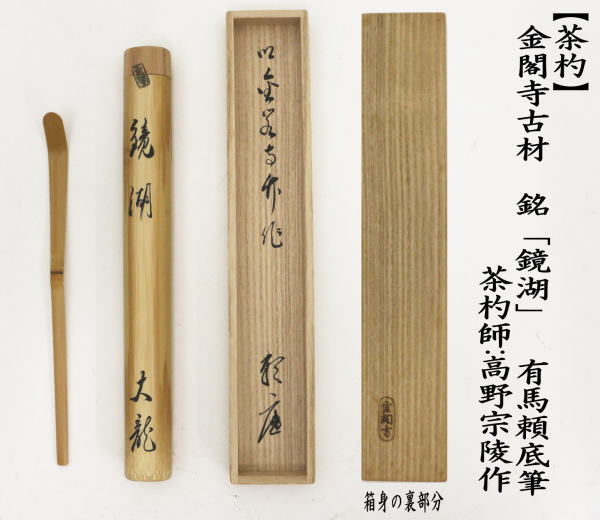 【茶杓】
金閣寺古材 銘「鏡湖」 有馬頼底筆
茶杓師:高野宗陵作
鏡湖 大龍
以金閣寺竹作 頼底
金閣寺
箱身の裏部分